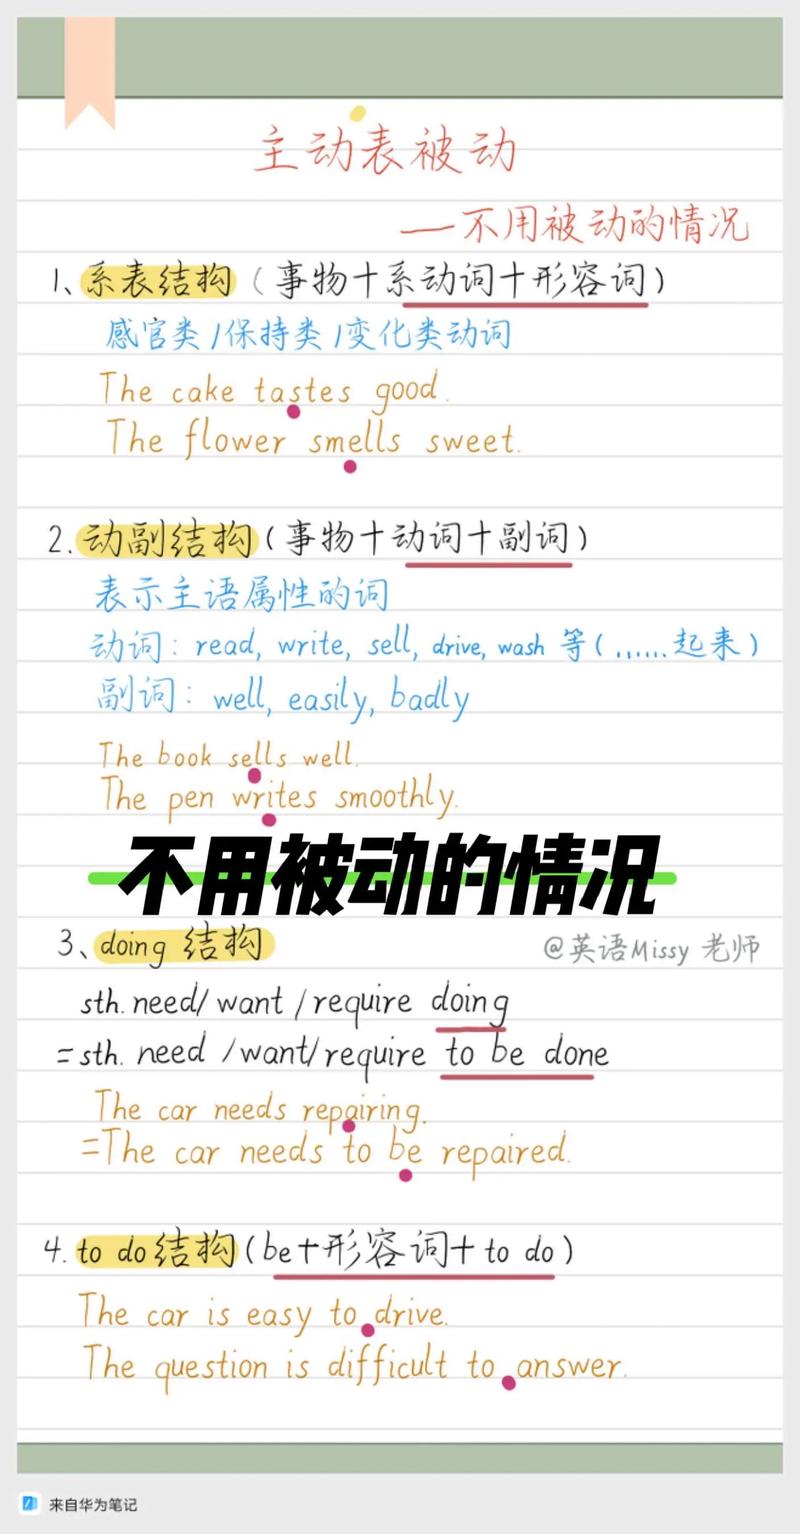 主动表被动
——不用被动的情况
1、系表结构(事物+系动词+形容词)
感官类/保持类/变化类动词
The cake tastes good.
The flower smells sweet.
2.动副结构(事物+动词+副词)
表示主语属性的词
动词:read, write, sell, drive, wash 等(......起来)
副词:well, easily, badly
The book sells well.
The pen writes smoothly.
不用被动的情况
3、doing 结构
@英语Missy 老师
sth. need/ want /require doing
=sth. need /want/require to be done
The car needs repairing.
=The car needs to be repaired.
4. to do 结构(be+形容词+to do)
The car is easy to drive.
The question is difficult to answer.
来自华为笔记